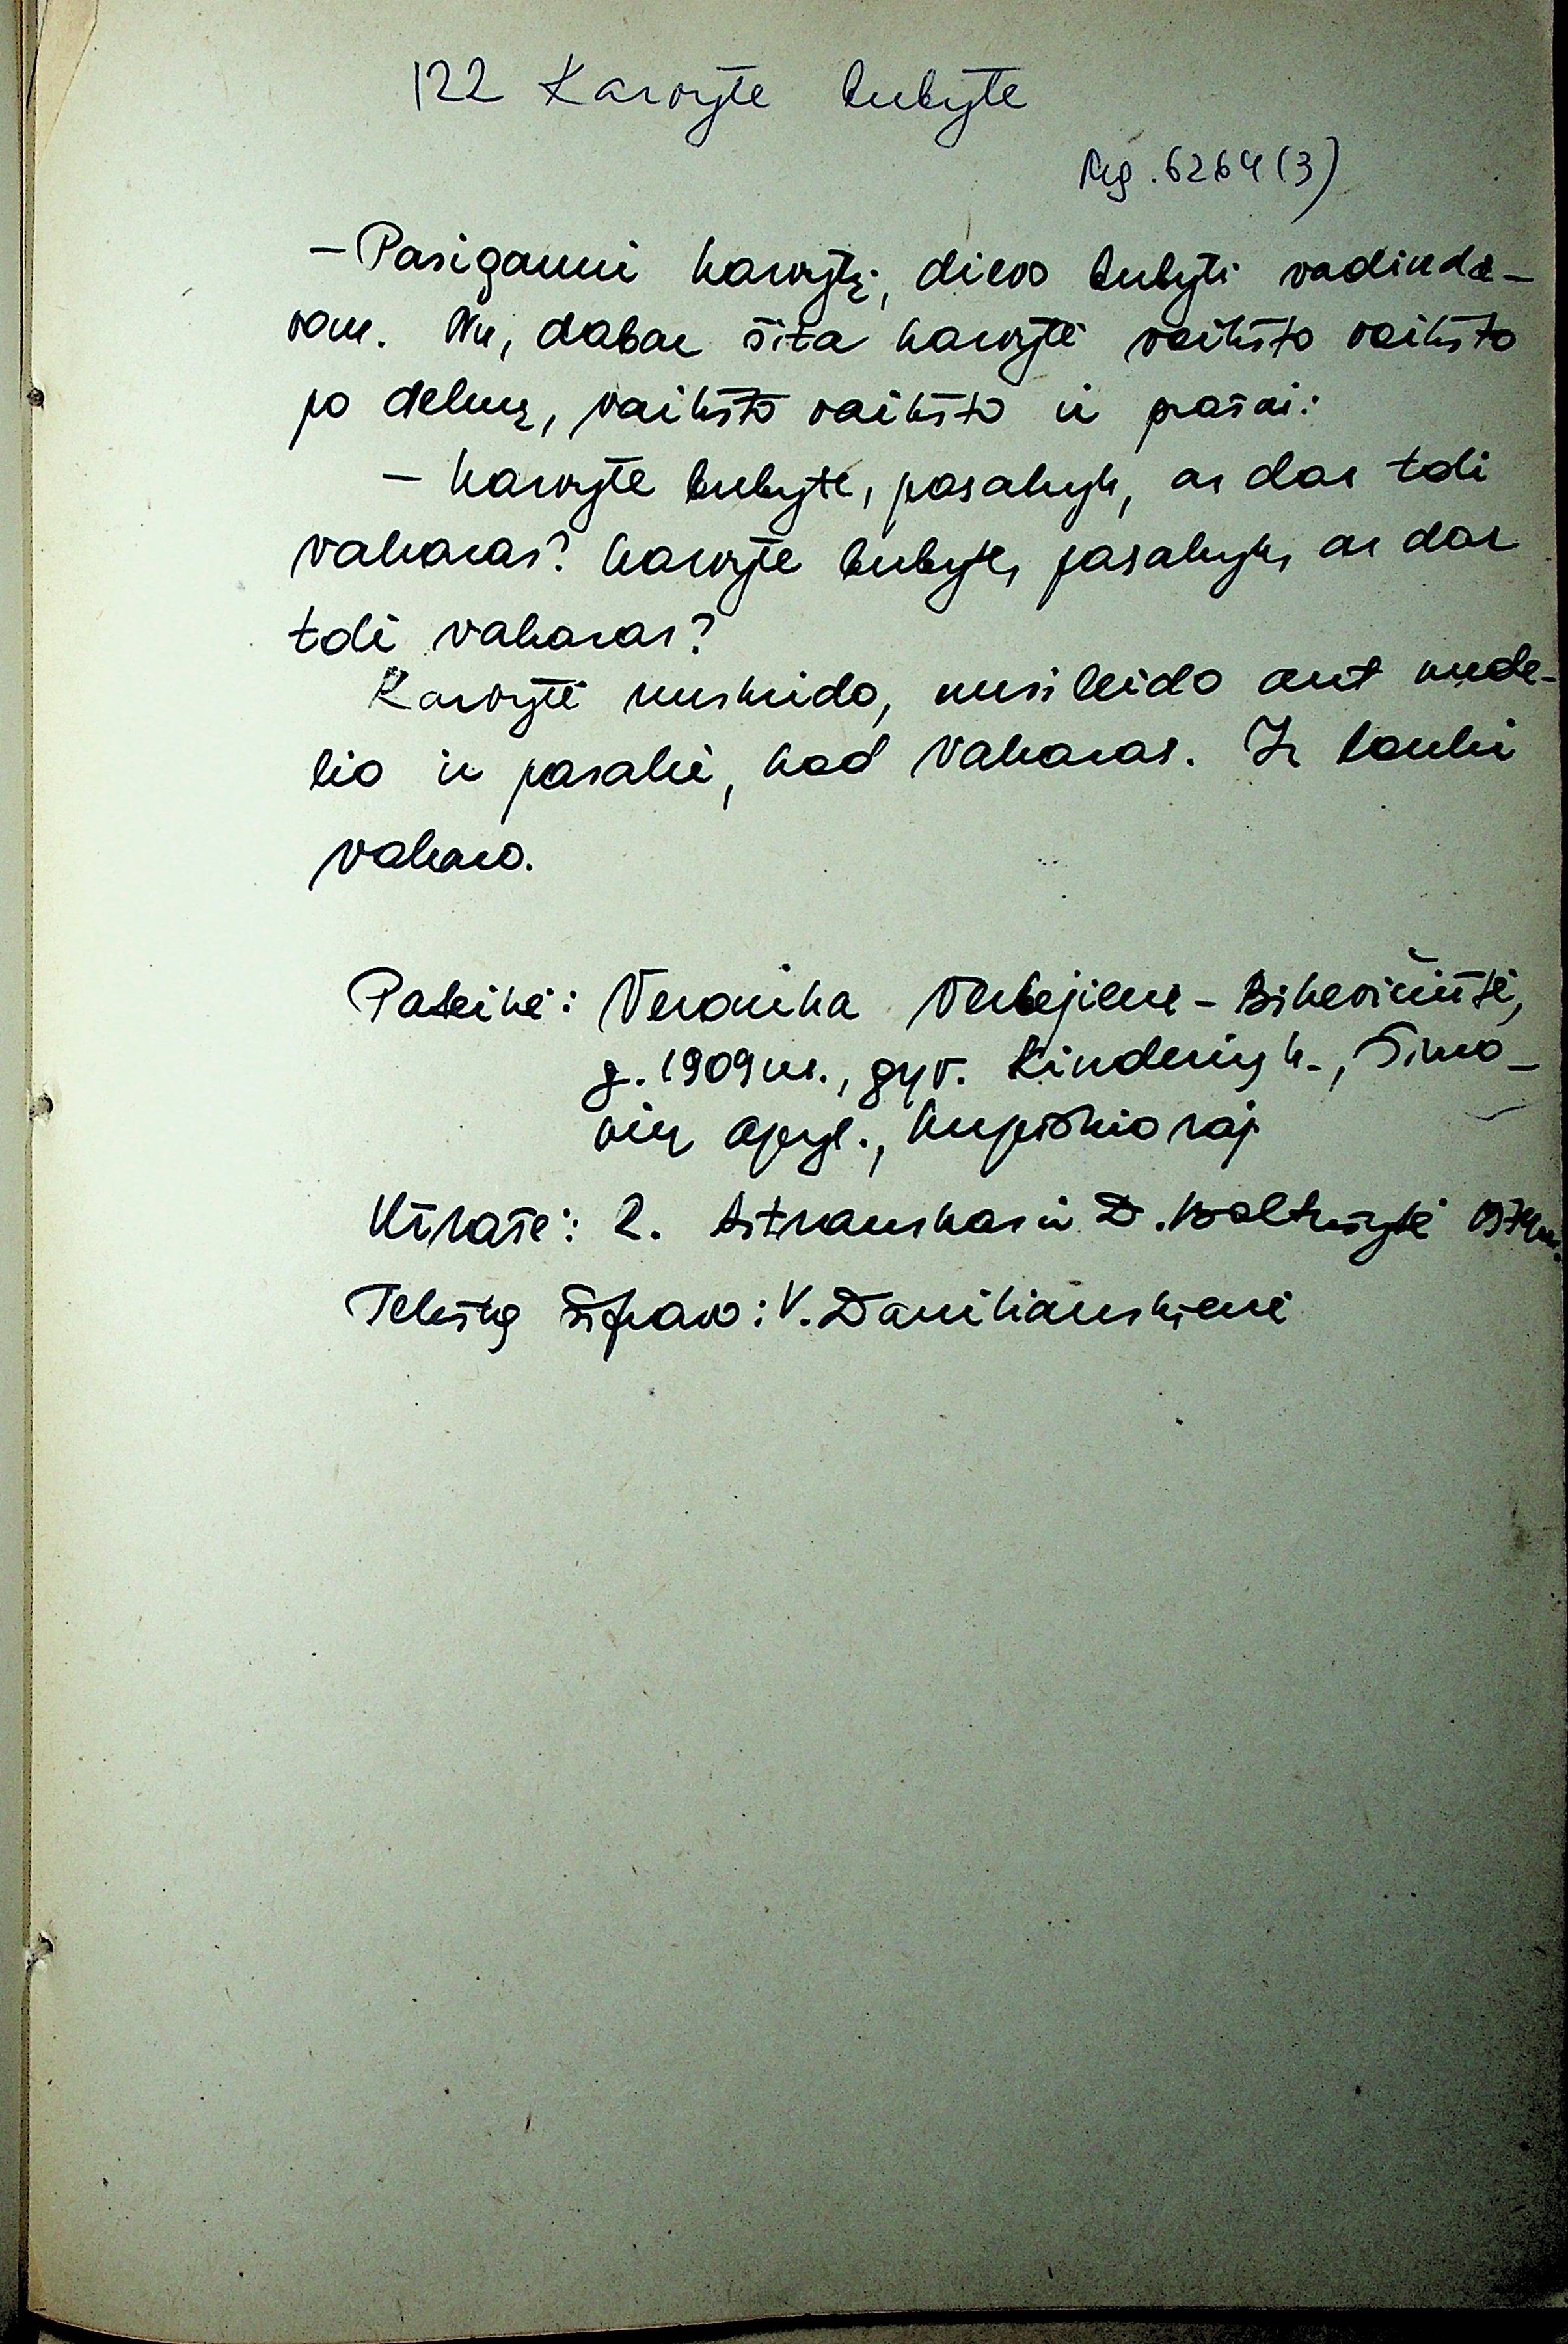 122 Karvyte bubyte
Mg. 6264(3)
– Pasigauni karvytę, dievo bubyti vadinda-
vom. Nu, dabar šita karvytė vaikšto vaikšto
po delną, vaikšto vaikšto ir prašai:
– Karvyte bubyte, pasakyk, ar dar toli
vakaras? Karvyte bubyte, pasakyk, ar dar
toli vakaras?
Karvytė nuskrido, nusileido ant mede-
lio ir pasakė, kad vakaras. Ir lauki
vakaro.
Pateikė: Veronika Vilbejienė-Bikevičiūtė,
g. 1909 m., gyv. Kinderių k., Šimo-
nių apyl., Kupiškio raj
Užrašė: R. Astrauskas ir D. Baltrušytė 1974 m.
Tekstą šifravo: V. Daniliauskienė